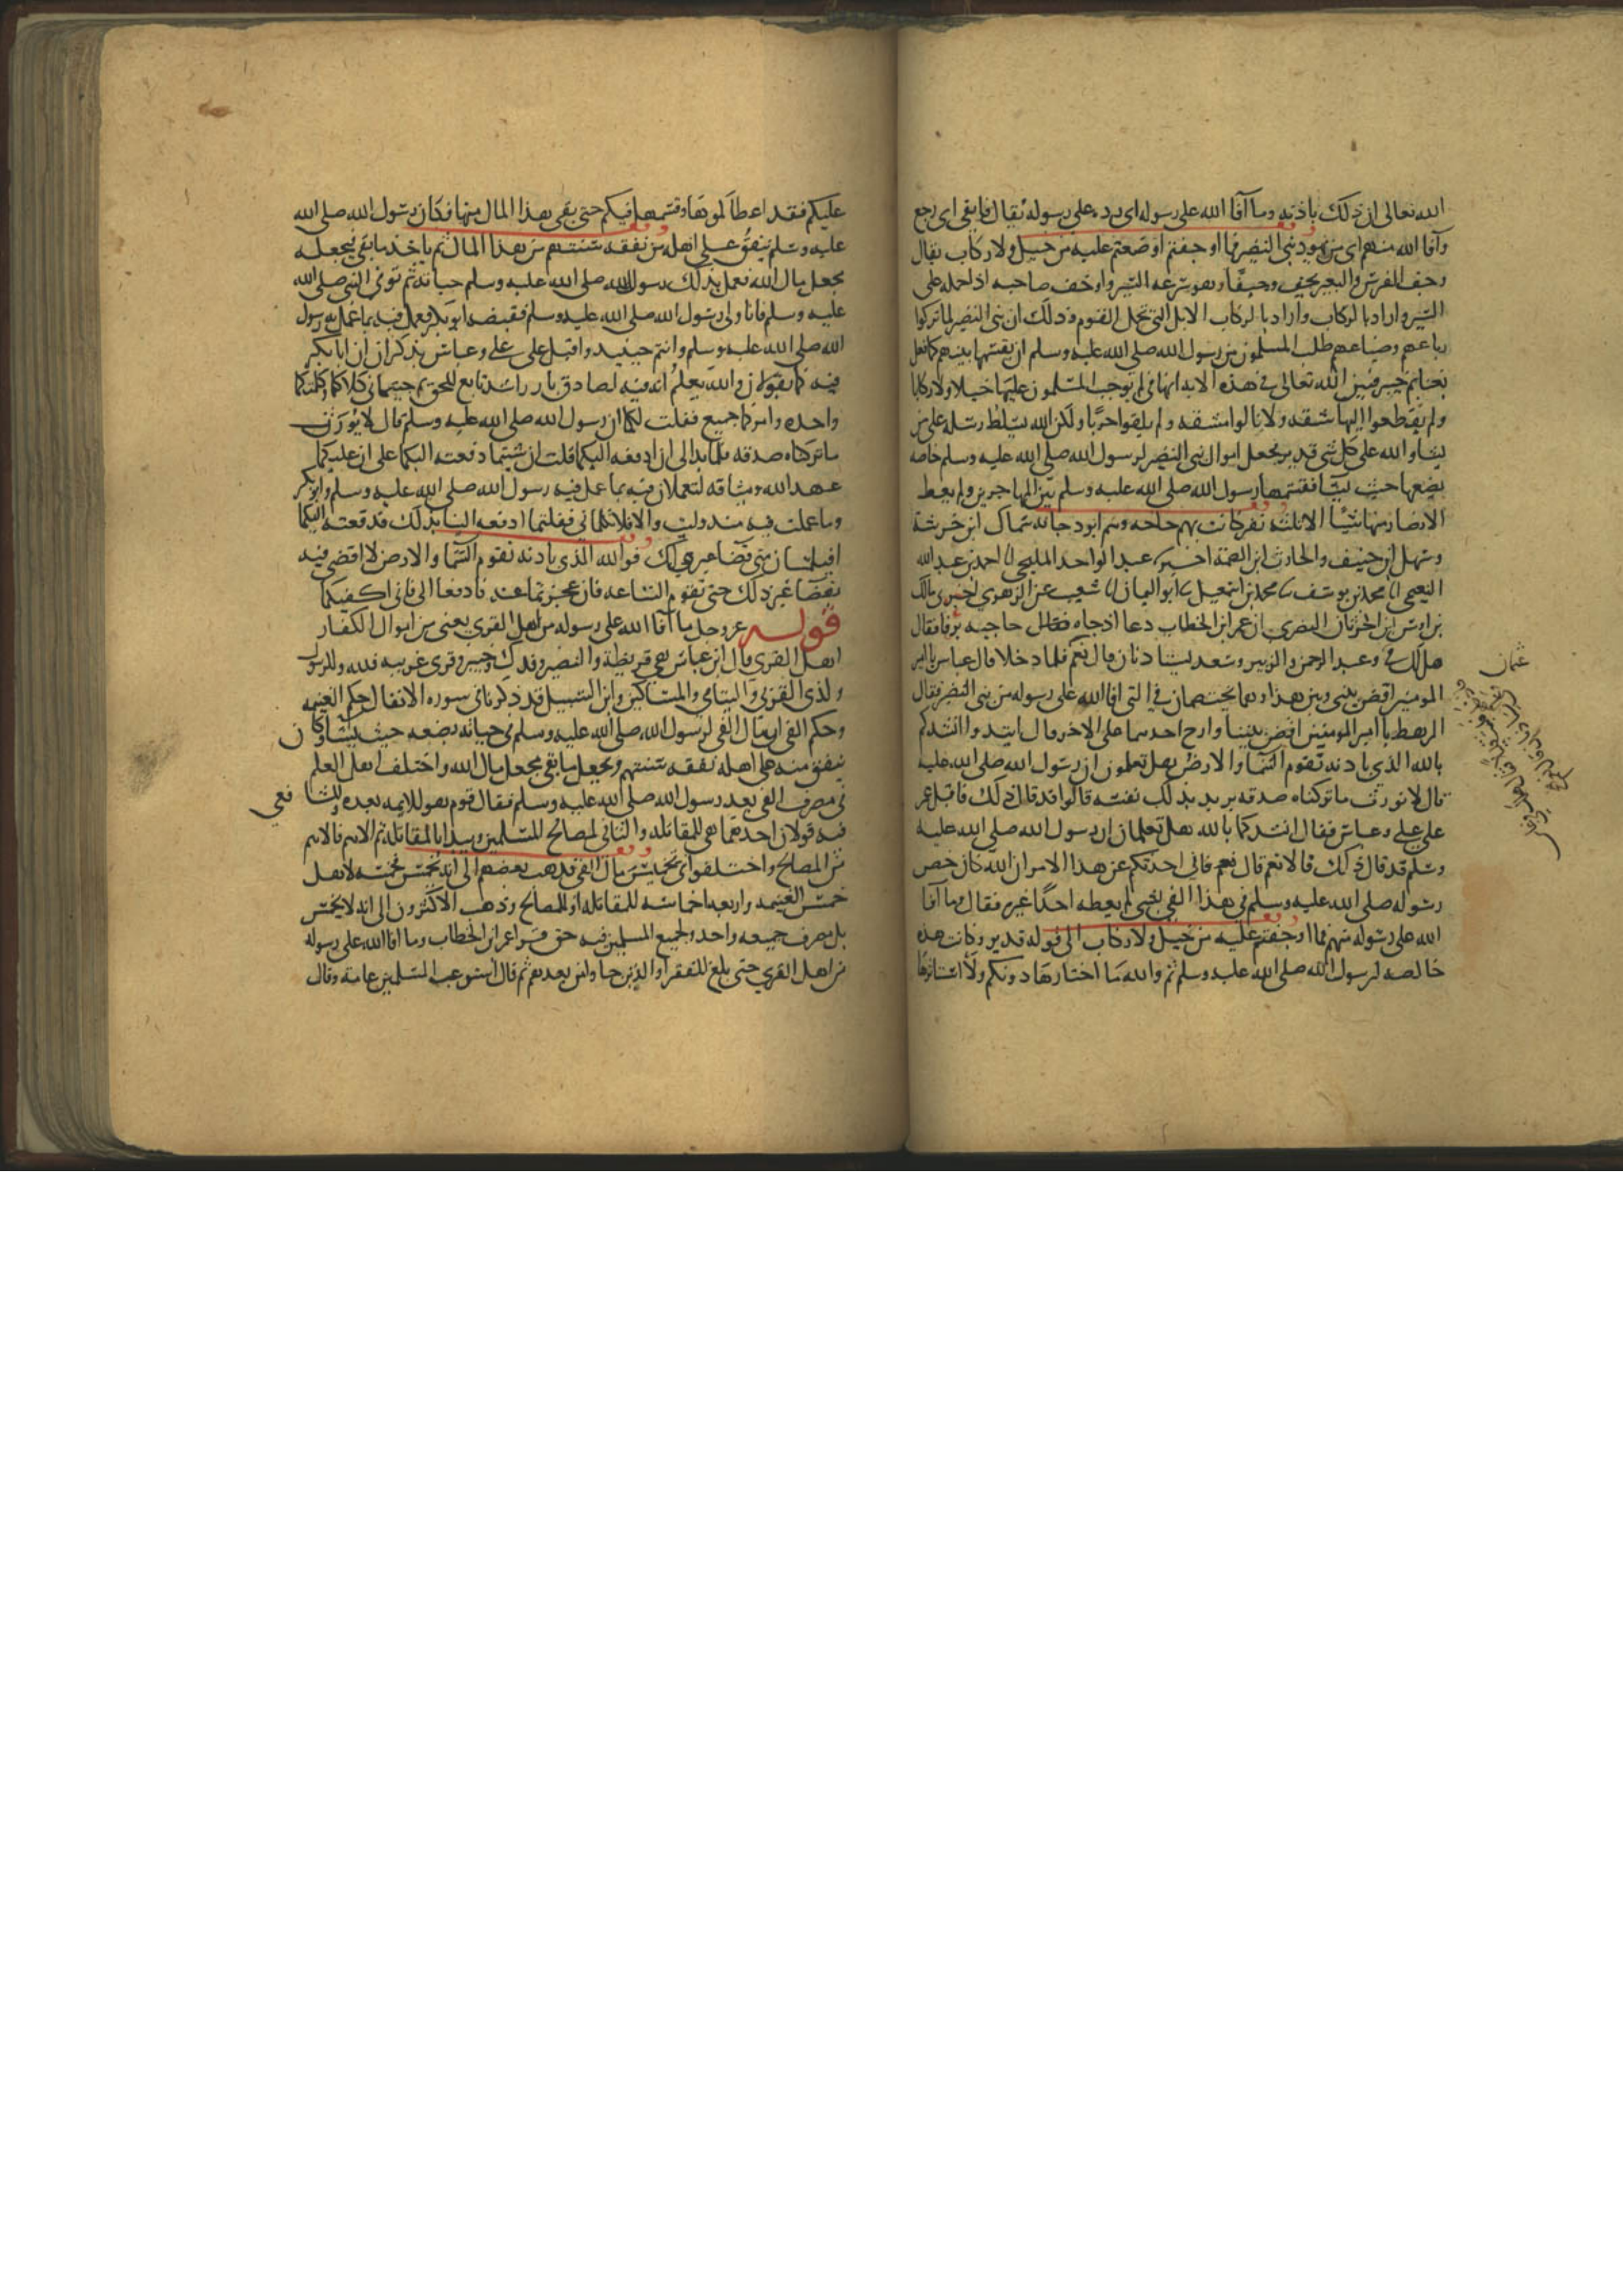 الله تعالى ان ذلك باذنه وما آفا الله على رسوله اى رد على رسوله يقال فا يفى اى رجع
وآفا الله منهم اى من يهود بنى النضير فما اوجفتم اوضعتم عليه من خيل ولا ركاب يقال
وجف الفرس والبعير يجف وجيفا وهو سرعه السير واوجف صاحبه اذا حمله على
السير واراد بالركاب الابل التى تحمل القوم وذلك ان بنى النضير لما تركوا
رباعهم وضياعهم طلب المسلمون من رسول الله صلى الله عليه وسلم ان يقسمها بينهم كما فعل
بغنايم خيبر فبين الله تعالى فى هذه الايه انها فى لم يوجف المسلمون عليها خيلا ولا ركابا
ولم يقطعوا اليها شقه ولا نالوا مشقه ولم يلقوا حربا ولكن الله يسلط رسله على من
يشا والله على كل شى قدير فجعل اموال بنى النضير لرسول الله صلى الله عليه وسلم خاصه
يضعها حيث يشا فقسمها رسول الله صلى الله عليه وسلم بين المهاجرين ولم يعط
الانصار منها شيا الا ثلثه نفر كانت بهم حاجه وهم ابو دجانه سماك ابن خرشة
وسهل ابن حنيف والحارث ابن الصمة اخبرنا عبد الواحد المليحى انا احمد بن عبد الله
النعيمى انا محمد بن يوسف نا محمد بن اسمعيل نا ابو اليمان انا شعيب عن الزهرى اخبرنى مالك
بن اوس ابن الحدثان النصرى ان عمر ابن الخطاب دعا اذ جاه حاجبه يرفا فقال
هل لك فى وعبد الرحمن والزبير وسعد يستاذنان قال نعم فلما دخلا قال عباس يا امير
عثمان
المومنين اقض بينى وبين هذا وهما يختصمان فى التى افا الله على رسوله من بنى النضير فقال
الرهط يا امير المومنين اقض بيننا وارح احدهما على الاخر قال اتيدوا انشدكم
بالله الذى باذنه تقوم السما والارض هل تعلمون ان رسول الله صلى الله عليه
قال لا نورث ما تركناه صدقه يريد بذلك نفسه قالوا قد قال ذلك فاقبل عمر
على على وعباس فقال انشدكما بالله هل تعلمان ان رسول الله صلى الله عليه
وسلم قد قال ذلك قالا نعم قال نعم فانى احدثكم عن هذا الامر ان الله كان خص
رسوله صلى الله عليه وسلم فى هذا الفى بشى لم يعطه احدا غيره فقال وما آفا
الله على رسوله منهم فما اوجفتم عليه من خيل ولا ركاب الى قوله قدير وكانت هذه
خالصه لرسول الله صلى الله عليه وسلم ثم والله ما اختارها دونكم ولا استاثرها
عليكم فقد اعطاكموها وقسمها فيكم حتى بقى هذا المال منها فكان رسول الله صلى الله
عليه وسلم ينفق على اهله من نفقه سنتهم من هذا المال ثم ياخذ ما بقى فيجعله
مجعل مال الله فعمل بذلك رسول الله صلى الله عليه وسلم حياته ثم توفى النبى صلى الله
عليه وسلم فانا ولى رسول الله صلى الله عليه وسلم فقبضه ابو بكر فعمل فيه بما عمل به رسول
الله صلى الله عليه وسلم وانتم حينيذ واقبل على على وعباس يذكر ان ان ابا بكر
فيه كما يقولان والله يعلم انه فيه لصادق بار راشد تابع للحق ثم جيتمانى كلاكما وكلمتكما
واحده وامركما جميع فقلت لكما ان رسول الله صلى الله عليه وسلم قال لا نورث
ما تركناه صدقه فلما بدا لى ان ادفعه اليكما قلت ان شيتما دفعته اليكما على ان عليكما
عهد الله وميثاقه لتعملان فيه بما عمل فيه رسول الله صلى الله عليه وسلم وابو بكر
وما عملت فيه منذ وليت والا فلا تكلمانى فقلتما ادفعه الينا بذلك فدفعته اليكما
افتلتمسان منى قضا غير ذلك فوالله الذى باذنه تقوم السما والارض لا اقضى فيه
بقضا غير ذلك حتى تقوم الساعه فان عجزتما عنه فادفعا الى فانى اكفيكما
قوله عز وجل ما آفا الله على رسوله من اهل القرى يعنى من اموال الكفار
اهل القرى قال ابن عباس هى قريظة والنضير وفدك وخيبر وقرى عرينه فلله وللرسول
ولذى القربى واليتامى والمساكين وابن السبيل قد ذكرنا فى سوره الانفال حكم الغنيمه
وحكم الفى ان مال الفى لرسول الله صلى الله عليه وسلم فى حياته يضعه حيث يشا وكان
ينفق منه على اهله نفقه سنتهم ويجعل ما بقى مجعل مال الله واختلف اهل العلم
فى مصرف الفى بعد رسول الله صلى الله عليه وسلم فقال قوم هو للايمه بعده وللشافعى
فيه قولان احدهما هى للمقاتله والثانى لمصالح المسلمين ويبدا بالمقاتله ثم الاهم فالاهم
من المصالح واختلفوا فى تخميس مال الفى فذهب بعضهم الى انه يخمس فخمسه لاهل
خمس الغنيمه واربعه اخماسه للمقاتله او للمصالح وذهب الاكثرون الى انه لا يخمس
بل مصرف جميعه واحد ولجميع المسلمين فيه حق قرا عمر ابن الخطاب وما افا الله على رسوله
من اهل القرى حتى بلغ للفقرا والذين جاوا من بعدهم ثم قال استوعبت المسلمين عامه وقال